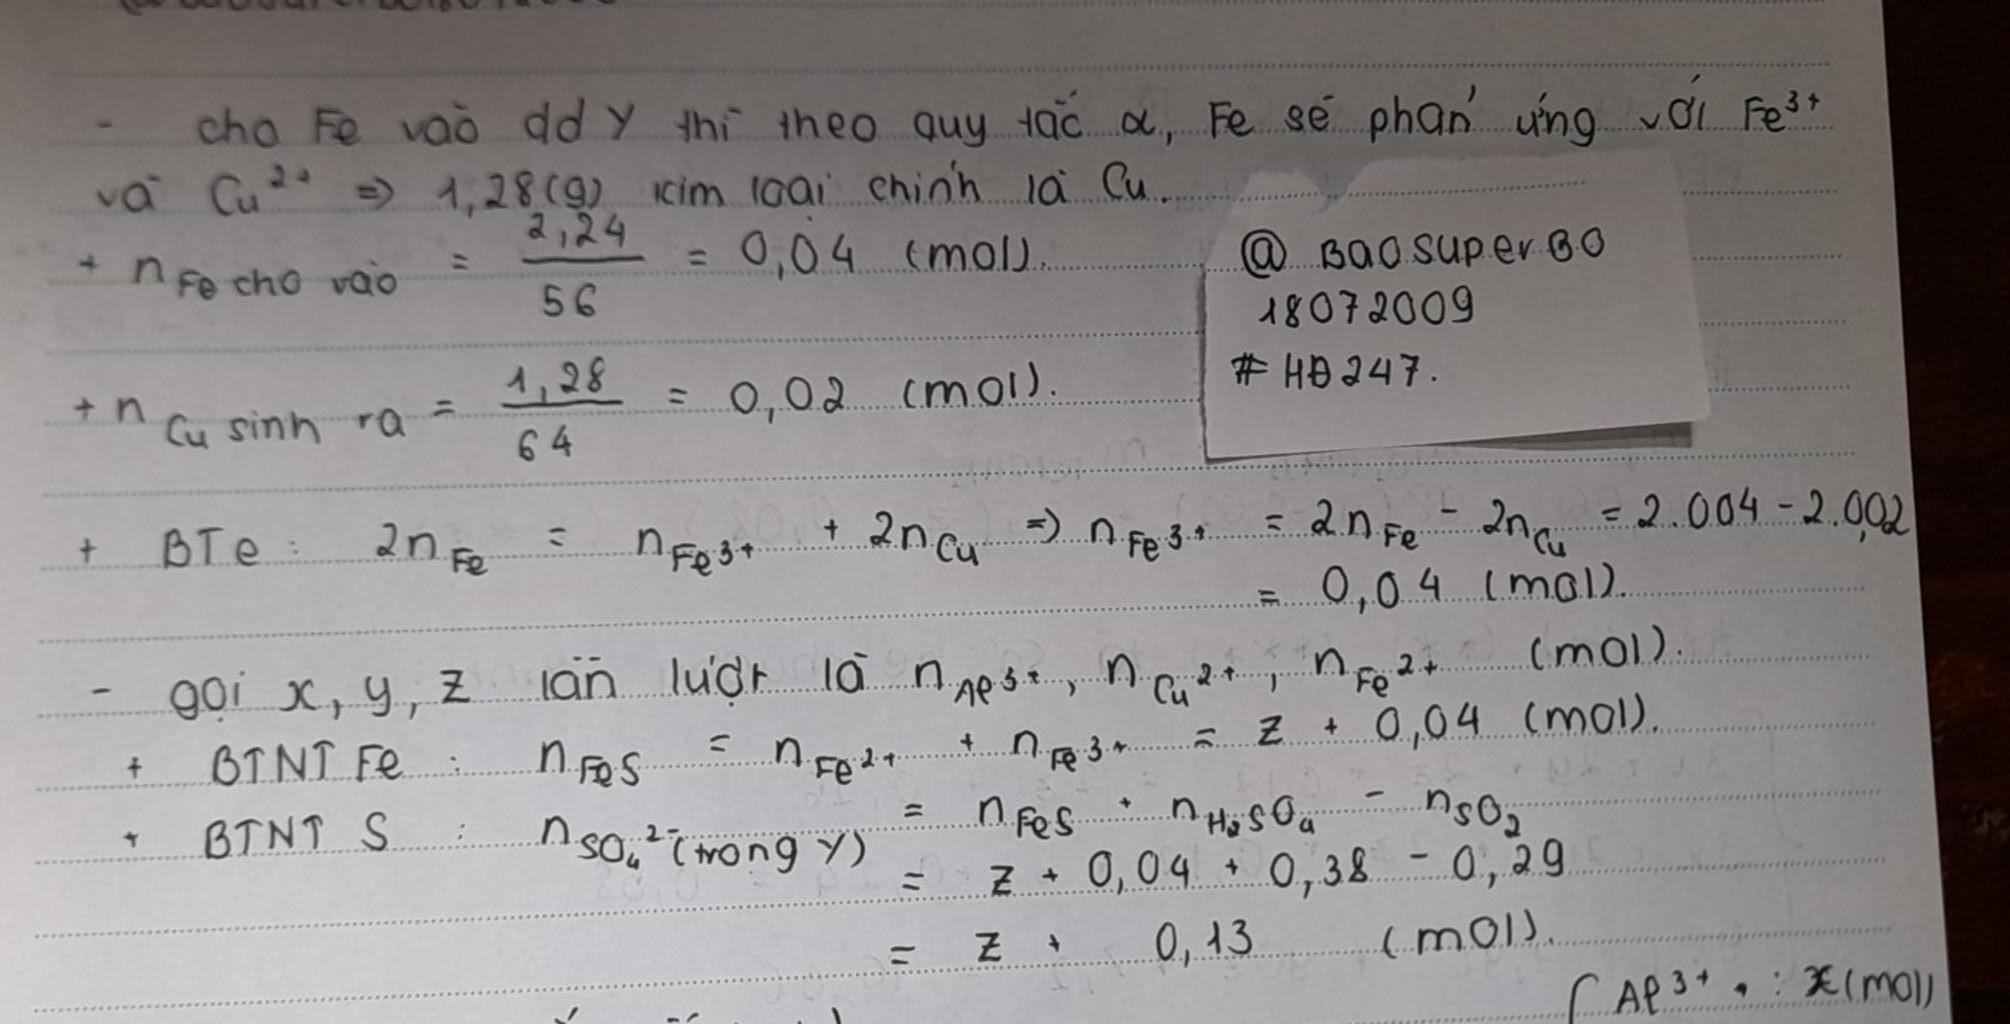 - cho Fe vào dd Y thì theo quy tắc α, Fe sẽ phản ứng với Fe³⁺
và Cu²⁺ ⇒ 1,28(g) kim loại chính là Cu.
+ n Fe cho vào = 2,24/56 = 0,04 (mol).
@ BaosuperBO
18072009
#HĐ247.
+ n Cu sinh ra = 1,28/64 = 0,02 (mol).
+ BTe: 2n Fe = n Fe³⁺ + 2n Cu ⇒ n Fe³⁺ = 2n Fe - 2n Cu = 2.004 - 2.0,02
= 0,04 (mol).
- gọi x, y, z lần lượt là n Al³⁺, n Cu²⁺, n Fe²⁺ (mol).
+ BTNT Fe : n FeS = n Fe²⁺ + n Fe³⁺ = z + 0,04 (mol).
+ BTNT S : n SO₄²⁻ (trong Y) = n FeS + n H₂SO₄ - n SO₂
= z + 0,04 + 0,38 - 0,29
= z + 0,13 (mol).
{ Al³⁺ : x (mol)